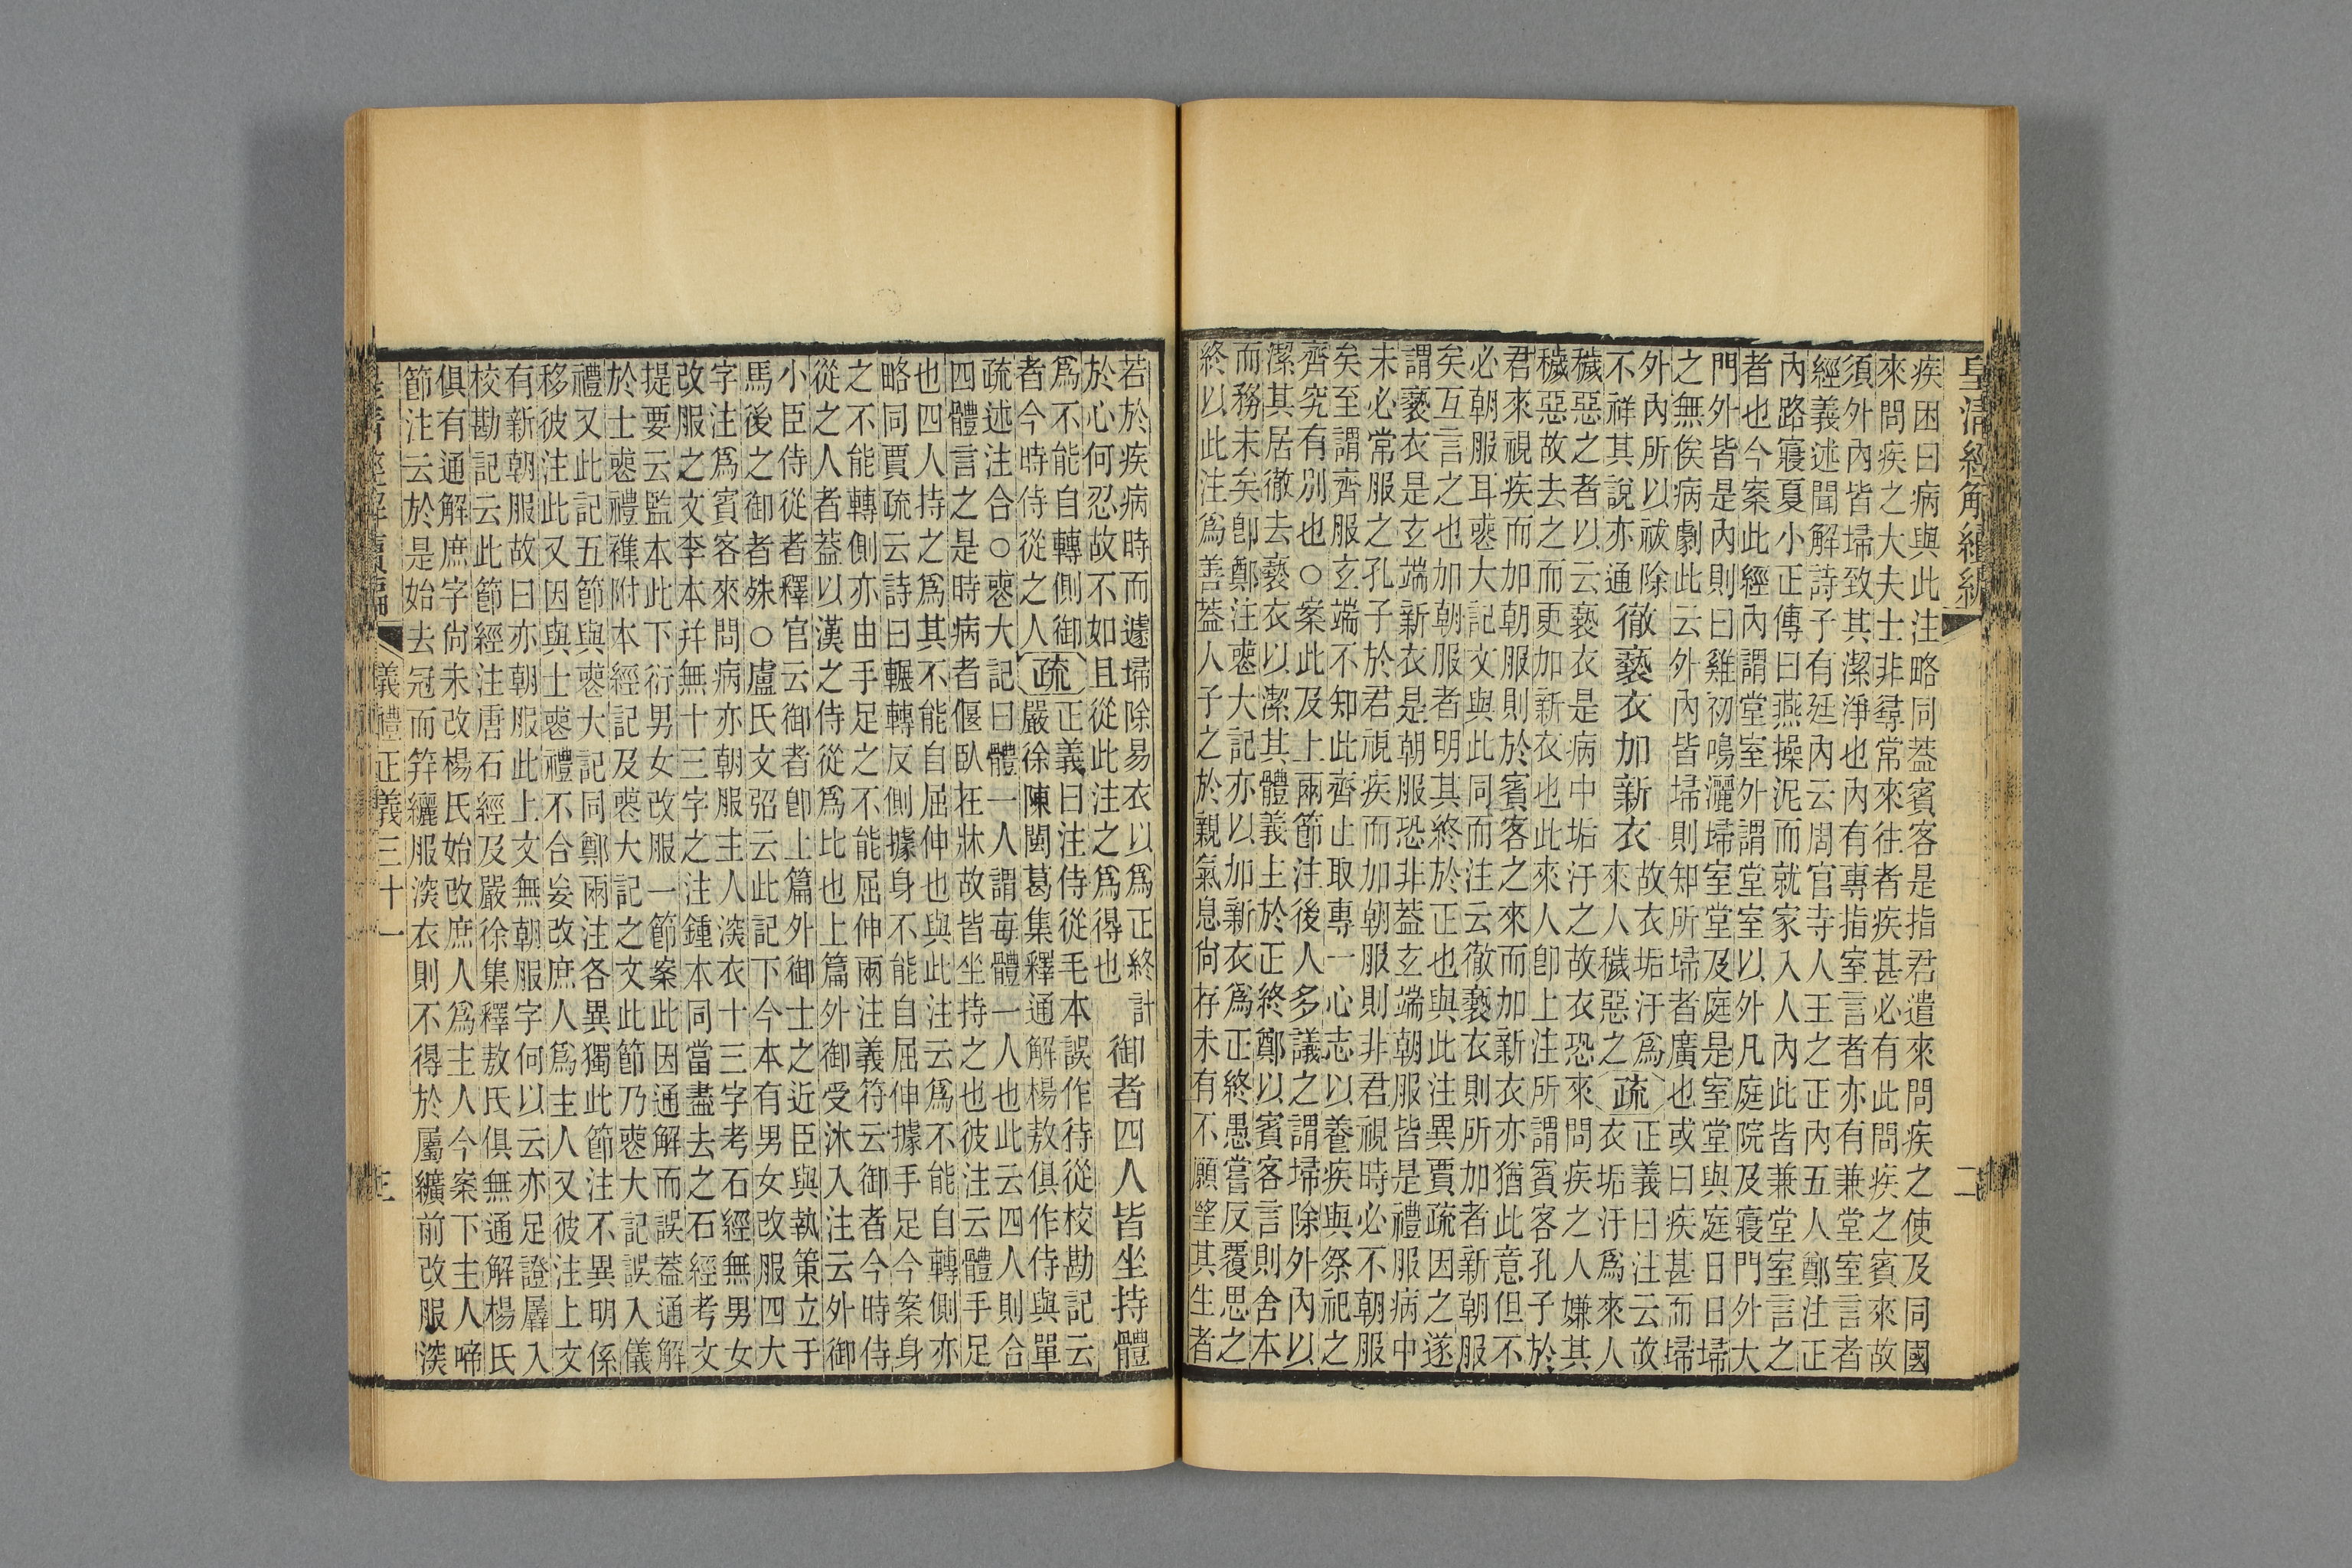 皇清經解續編
二
疾困曰病與此注略同蓋賓客是指君遣來問疾之使及同國
來問疾之大夫士非尋常來往者疾甚必有此問疾之賓來故
須外內皆埽致其潔淨也內有專指室言者亦有兼堂室言者
經義述聞解詩子有廷內云周官寺人王之正內五人鄭注正
內路寢夏小正傳曰燕操泥而就家入人內此皆兼堂室言之
者也今案此經內謂堂室外謂堂室以外凡庭院及寢門外大
門外皆是內則曰雞初鳴灑埽室堂及庭是室堂與庭日日埽
之無俟病劇此云外內皆埽則知所埽者廣也或曰疾甚而埽
外內所以祓除
不祥其說亦通
徹褻衣加新衣
故衣垢汙爲
來人穢惡之
疏
正義曰注云故
衣垢汙爲來人
穢惡之者以云褻衣是病中垢汙之故衣恐來問疾之人嫌其
穢惡故去之而更加新衣也此來人卽上注所謂賓客孔子於
君來視疾而加朝服則於賓客之來而加新衣亦猶此意但不
必朝服耳喪大記文與此同而注云徹褻衣則所加者新朝服
矣互言之也加朝服者明其終於正也與此注異賈疏因之遂
謂褻衣是玄端新衣是朝服恐非蓋玄端朝服皆是禮服病中
未必常服之孔子於君視疾而加朝服則非君視時必不朝服
矣至謂齊服玄端不知此齊止取專一心志以養疾與祭祀之
齊究有別也○案此及上兩節注後人多議之謂埽除外內以
潔其居徹去褻衣以潔其體義上於正終鄭以賓客言則舍本
而務末矣卽鄭注喪大記亦以加新衣爲正終愚嘗反覆思之
終以此注爲善蓋人子之於親氣息尙存未有不願望其生者
若於疾病時而遽埽除易衣以爲正終計
於心何忍故不如且從此注之爲得也
御者四人皆坐持體
爲不能自轉側御
者今時侍從之人
疏
正義曰注侍從毛本誤作待從校勘記云
嚴徐陳閩葛集釋通解楊敖俱作侍與單
疏述注合○喪大記曰體一人謂每體一人也此云四人則合
四體言之是時病者偃臥在牀故皆坐持之也彼注云體手足
也四人持之爲其不能自屈伸也與此注云爲不能自轉側亦
略同賈疏云詩曰輾轉反側據身不能自屈伸據手足今案身
之不能轉側亦由手足之不能屈伸兩注義符云御者今時侍
從之人者蓋以漢之侍從爲比也上篇外御受沐入注云外御
小臣侍從者釋官云御者卽上篇外御士之近臣與執策立于
馬後之御者殊○盧氏文弨云此記下今本有男女改服四大
字注爲賓客來問病亦朝服主人深衣十三字考石經無男女
改服之文李本幷無十三字之注鍾本同當盡去之石經考文
提要云監本此下衍男女改服一節案此因通解而誤蓋通解
於士喪禮襍附本經記及喪大記之文此節乃喪大記誤入儀
禮又此記五節與喪大記同鄭兩注各異獨此節注不異明係
移彼注此又因與士喪禮不合妄改庶人爲主人又彼注上文
有新朝服故曰亦朝服此上文無朝服字何以云亦足證羼入
校勘記云此節經注唐石經及嚴徐集釋敖氏俱無通解楊氏
俱有通解庶字尙未改楊氏始改庶人爲主人今案下主人啼
節注云於是始去冠而筓纚服深衣則不得於屬纊前改服深
皇清經解續編
儀禮正義三十一
三